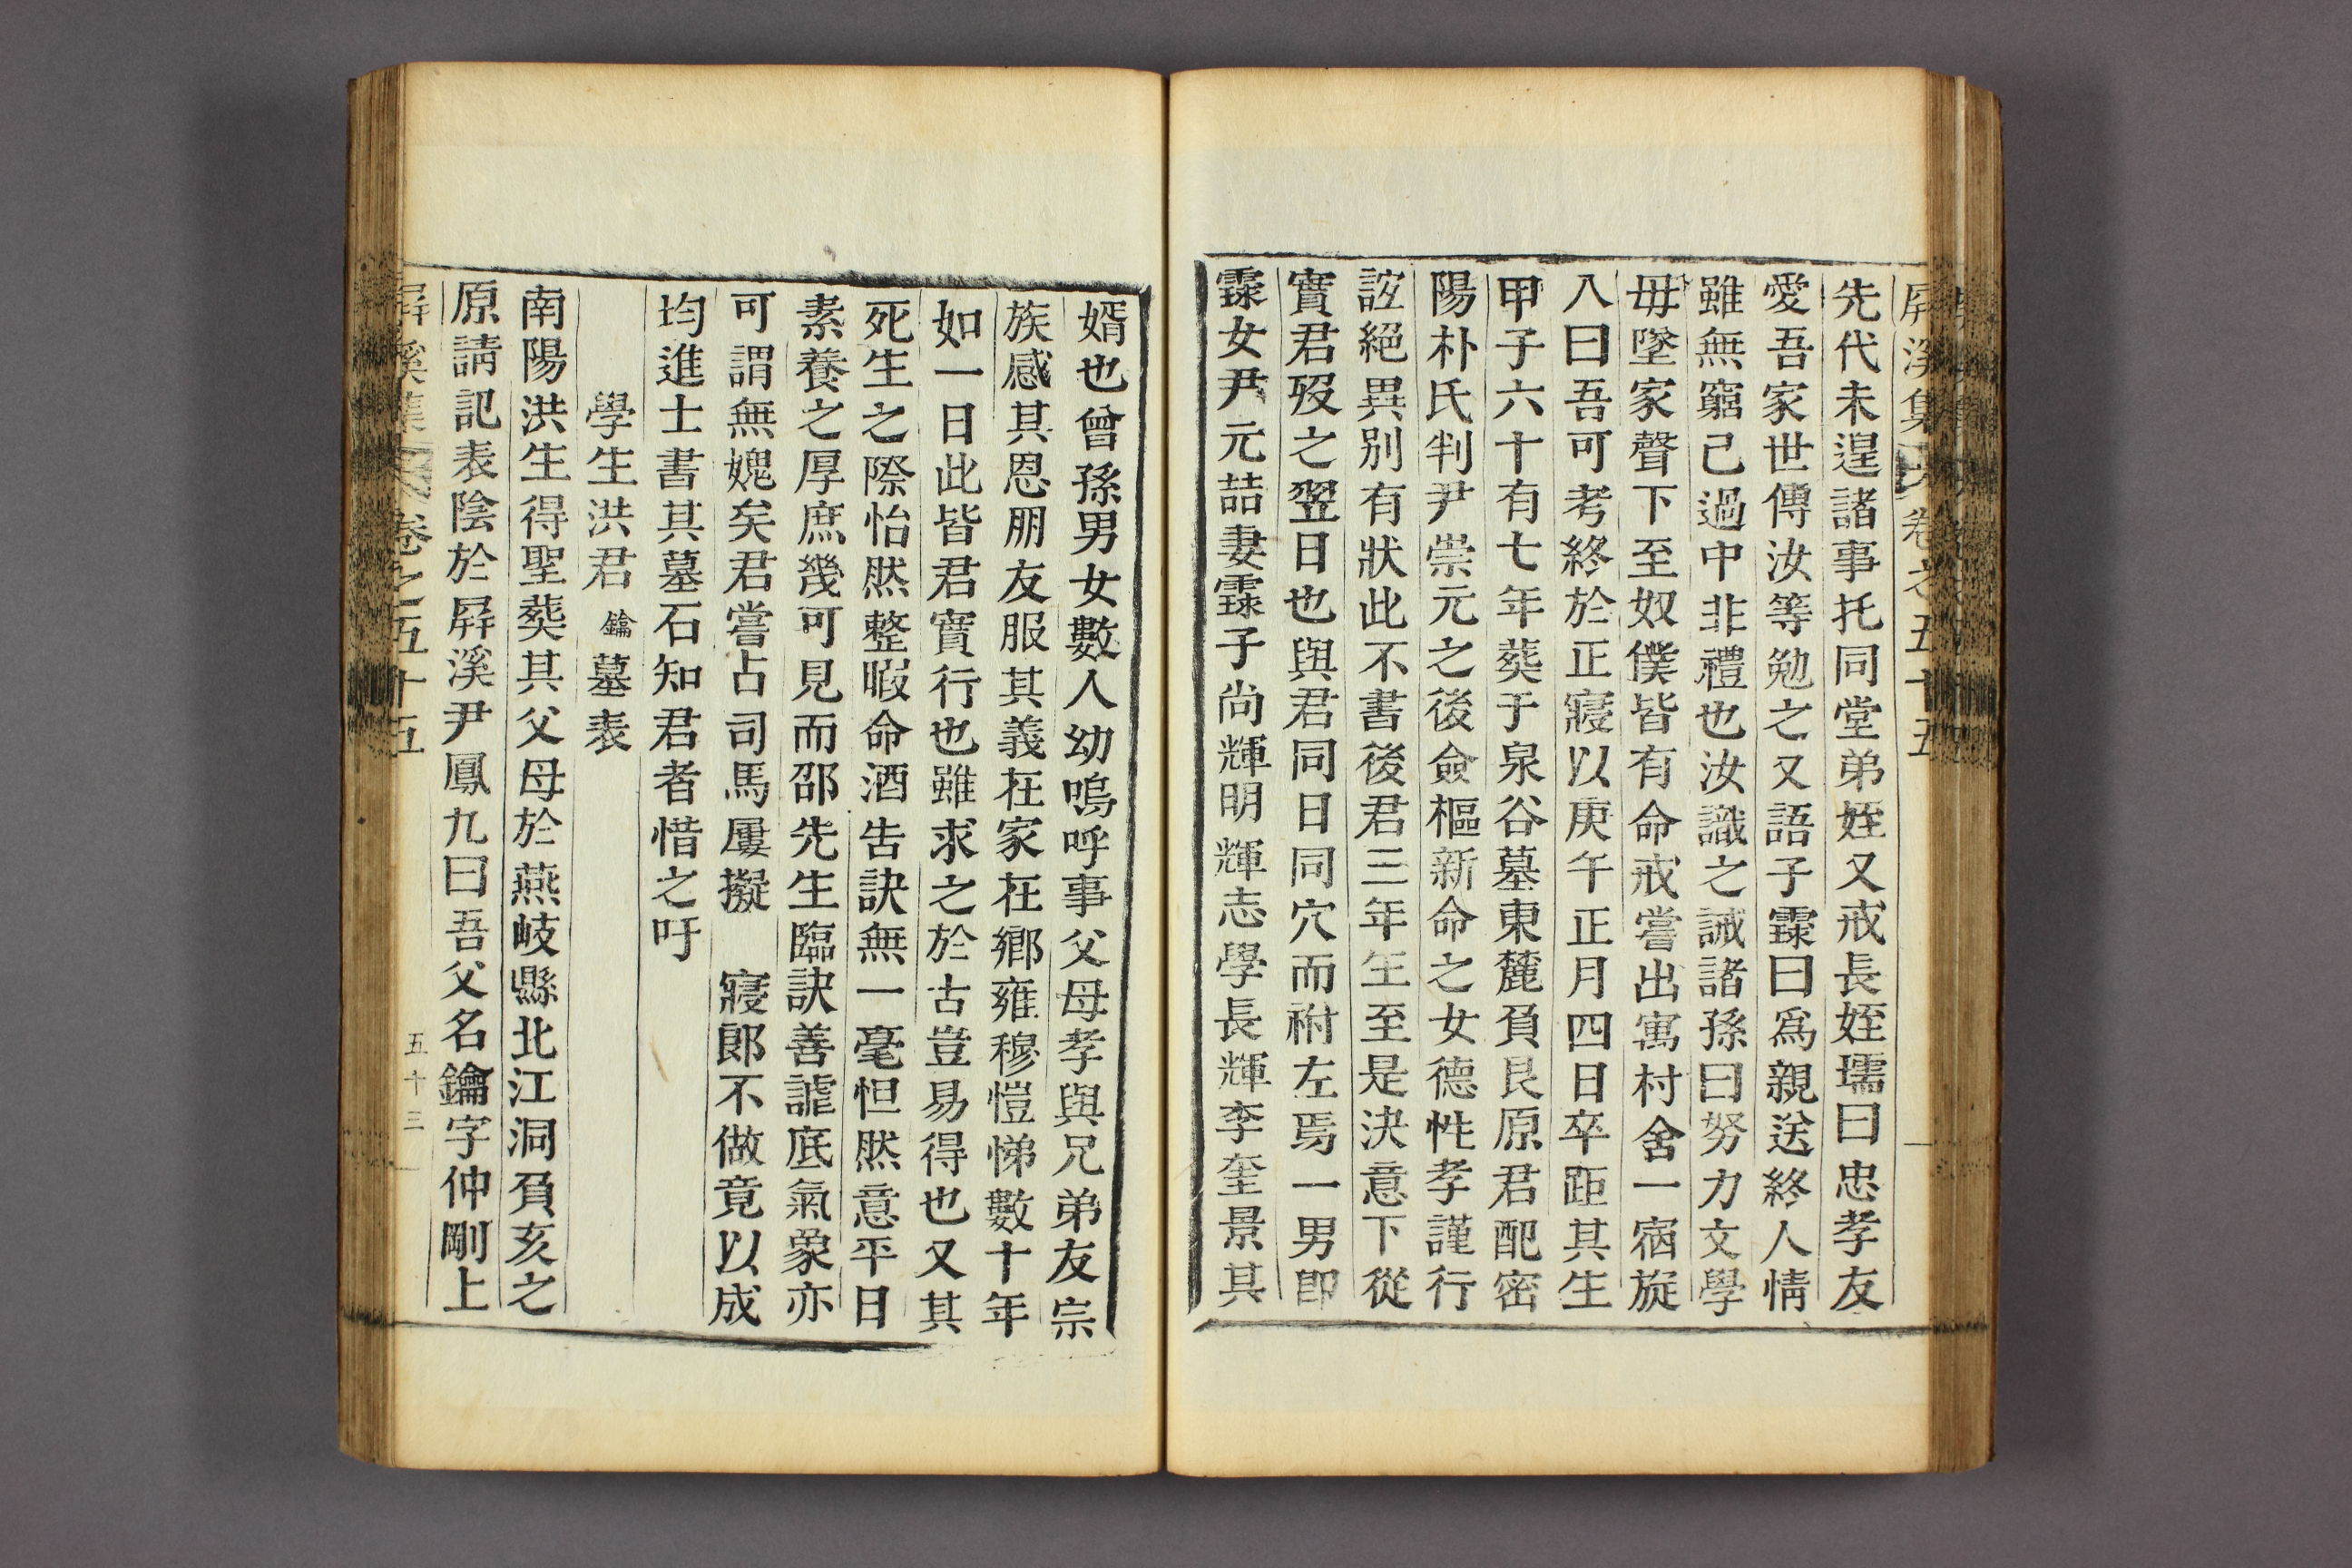 屛溪集 卷之五十五
先代未遑諸事托同堂弟姪又戒長姪瓀曰忠孝友
愛吾家世傳汝等勉之又語子霂曰爲親送終人情
雖無窮已過中非禮也汝識之誡諸孫曰努力文學
毋墜家聲下至奴僕皆有命戒嘗出寓村舍一宿旋
入曰吾可考終於正寢以庚午正月四日卒距其生
甲子六十有七年葬于泉谷墓東麓負艮原君配密
陽朴氏判尹崇元之後僉樞新命之女德性孝謹行
誼絕異別有狀此不書後君三年生至是決意下從
實君歿之翌日也與君同日同穴而祔左焉一男卽
霂女尹元喆妻霂子尚輝明輝志學長輝李奎景其
婿也曾孫男女數人幼嗚呼事父母孝與兄弟友宗
族感其恩朋友服其義在家在鄉雍穆愷悌數十年
如一日此皆君實行也雖求之於古豈易得也又其
死生之際怡然整暇命酒告訣無一毫怛然意平日
素養之厚庶幾可見而邵先生臨訣善謔底氣象亦
可謂無媿矣君嘗占司馬屢擬 寢郎不做竟以成
均進士書其墓石知君者惜之吁
學生洪君鑰墓表
南陽洪生得聖葬其父母於燕岐縣北江洞負亥之
原請記表陰於屛溪尹鳳九曰吾父名鑰字仲剛上
屛溪集 卷之五十五
五十三